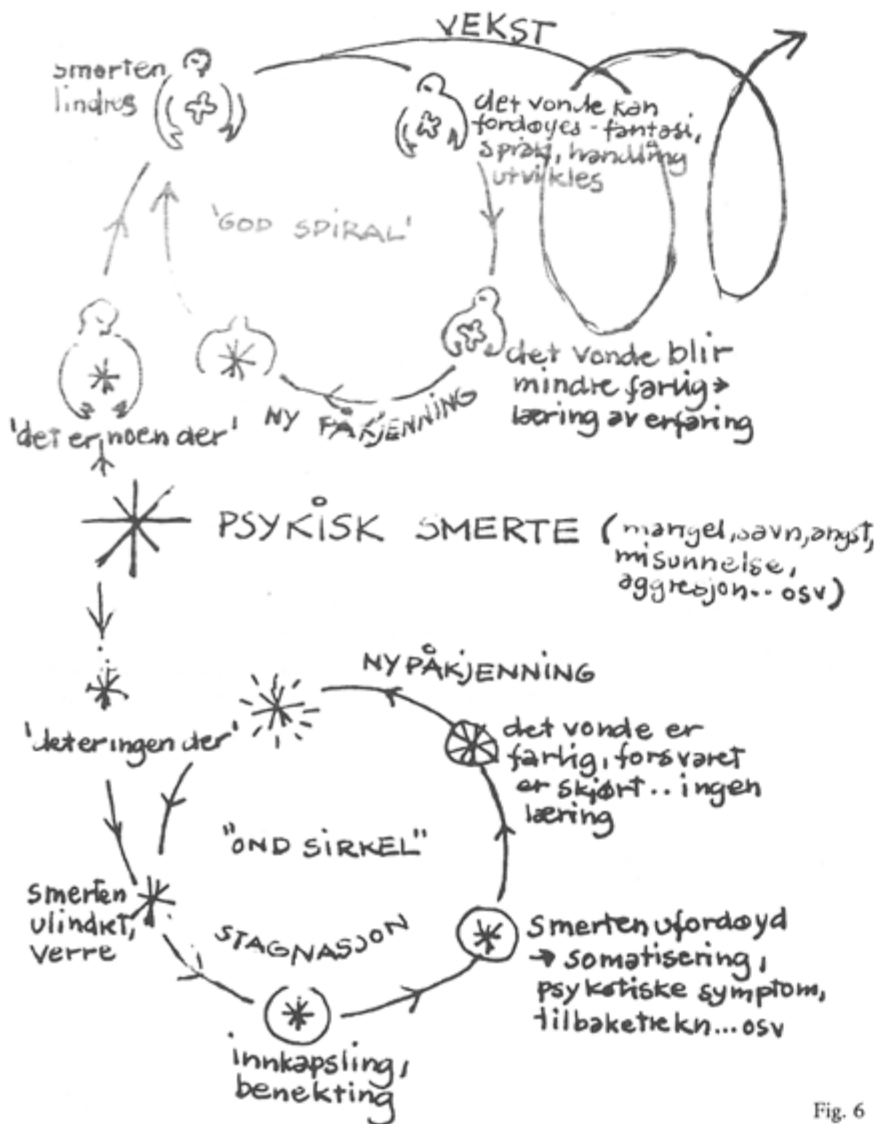 VEKST
smerten
lindres
det vonde kan
fordøyes - fantasi,
språk, handling
utvikles
'GOD SPIRAL'
det vonde blir
mindre farlig →
læring av erfaring
NY PÅKJENNING
'det er noen der'
PSYKISK SMERTE (mangel, savn, angst,
misunnelse,
aggresjon.. osv)
NY PÅKJENNING
'det er ingen der'
det vonde er
farlig, forsvaret
er skjørt .. ingen
læring
"OND SIRKEL"
smerten
ulindret,
verre
STAGNASJON
Smerten ufordøyd
→ somatisering,
psykotiske symptom,
tilbaketrekn... osv
innkapsling,
benekting
Fig. 6